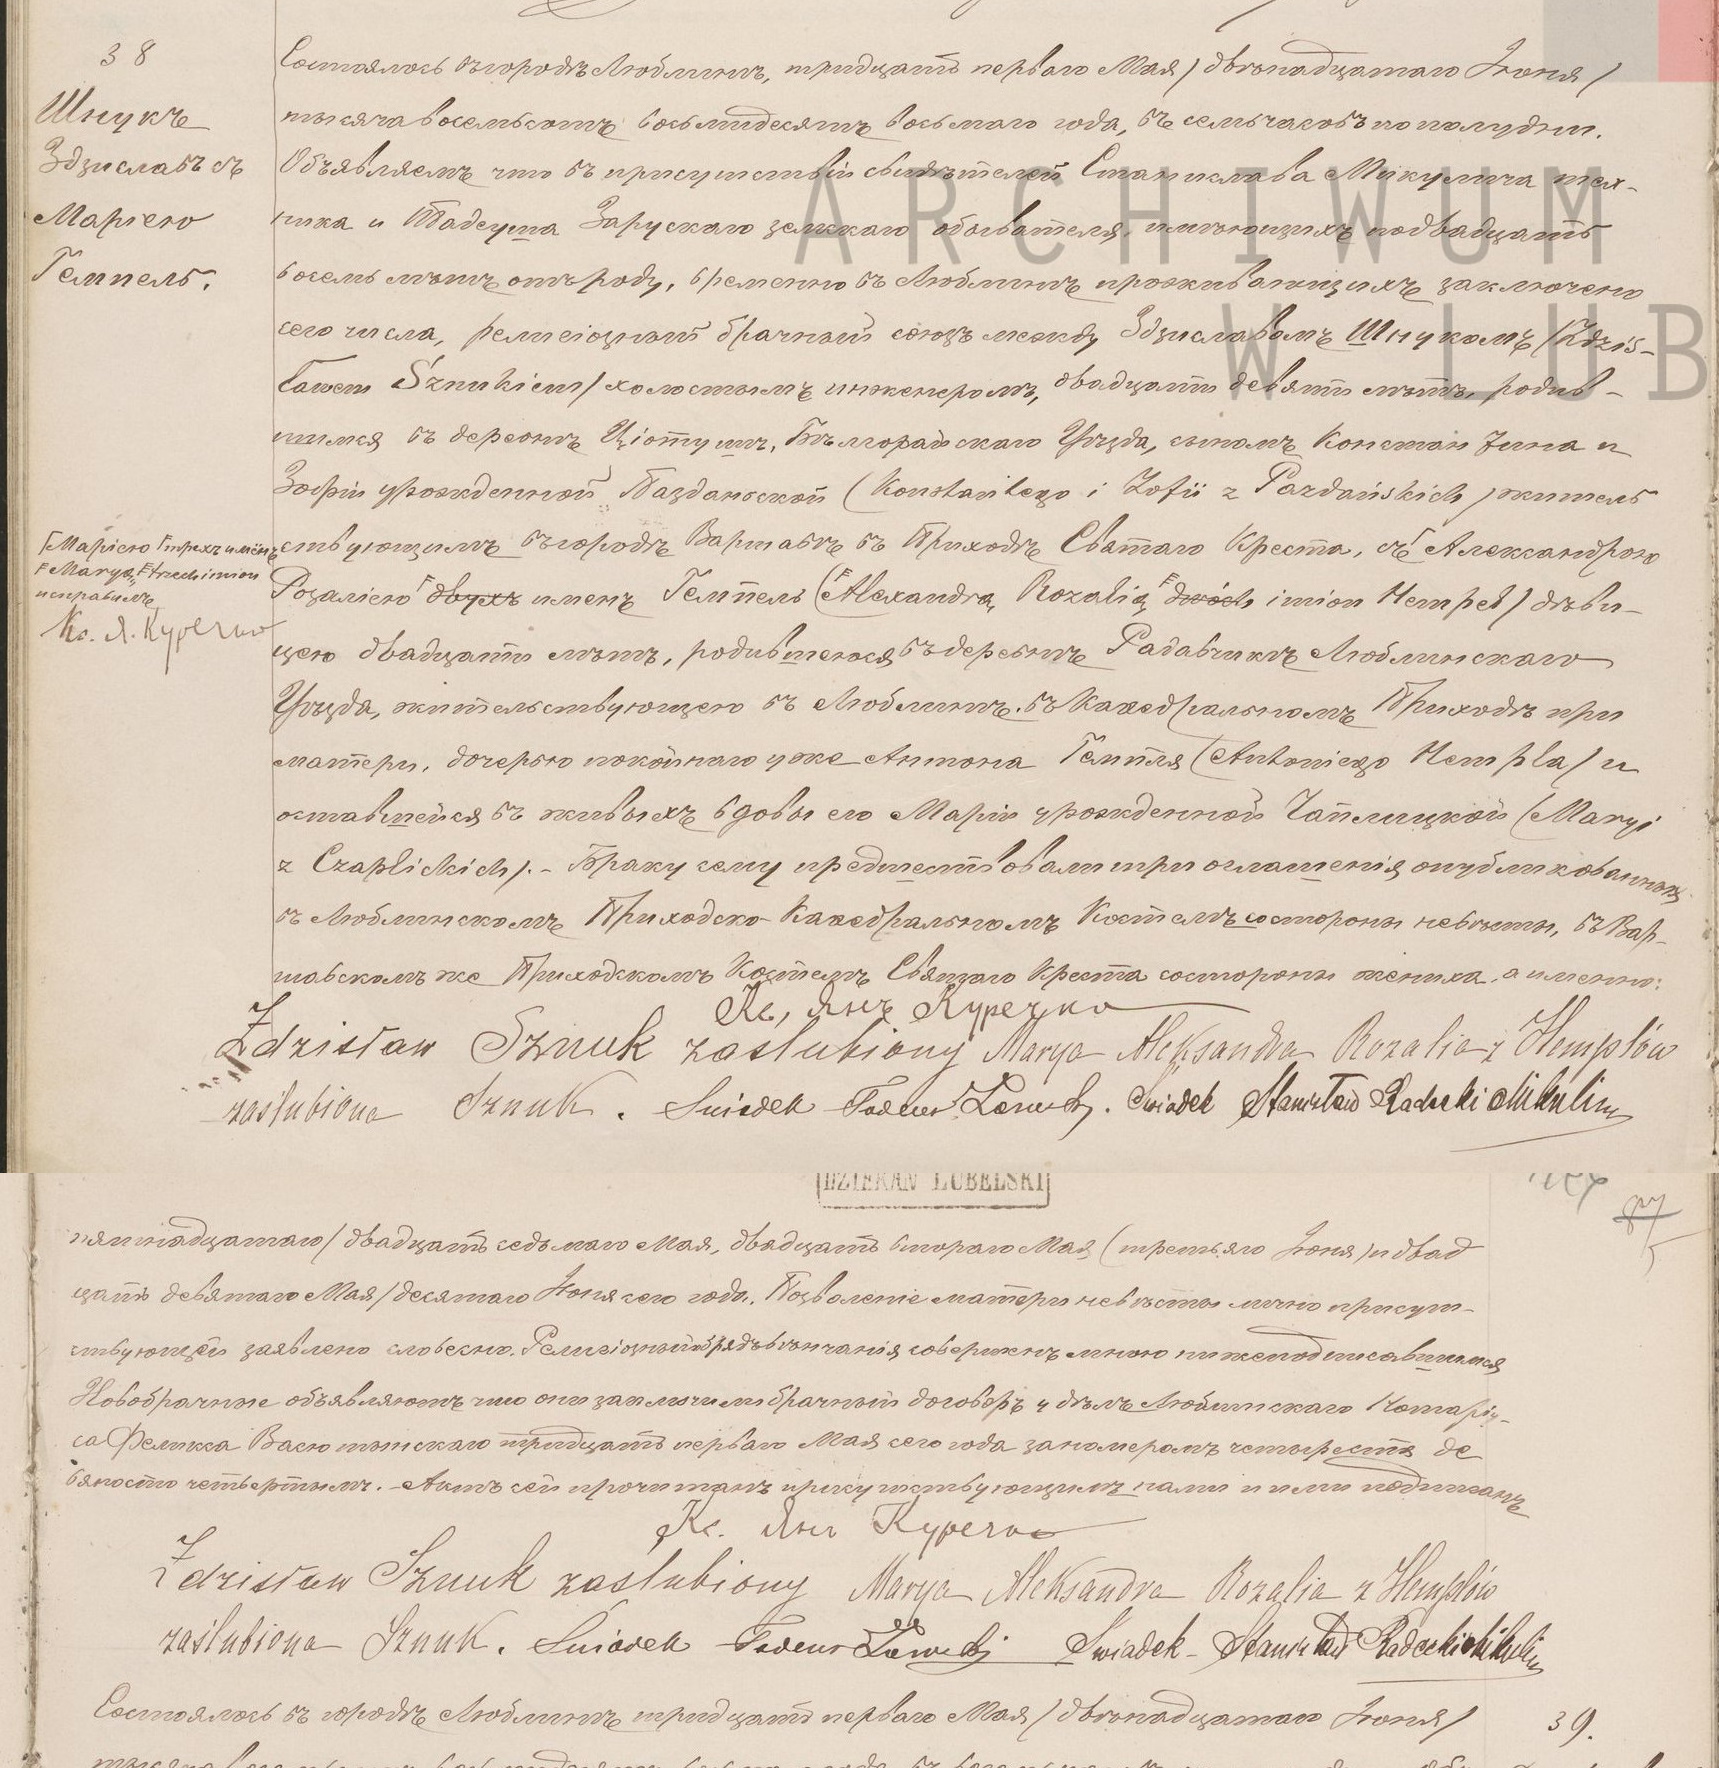 38
Шнукъ
Здзиславъ съ
Маріею
Гемпель.
Состоялось въ городѣ Люблинѣ, тридцать перваго Мая / двѣнадцатаго Іюня /
тысяча восемьсотъ восемьдесятъ восьмаго года, въ семь часовъ по полудни.
Объявляемъ что въ присутствіи свидѣтелей Станислава Микулича тех-
ника и Тадеуша Зарускаго земскаго обывателя, имѣющихъ по двадцать
восемь лѣтъ отъ роду, временно въ Люблинѣ проживающихъ заключено
сего числа, религіозный брачный союзъ между Здзиславомъ Шнукомъ / Zdzis-
ławem Sznukiem / холостымъ инженеромъ, двадцати девяти лѣтъ, родив-
шимся въ деревнѣ Ціотушѣ, Бѣлгорайскаго Уѣзда, сыномъ Константина и
Зофіи урожденной Паздановской (Konstantego i Zofii z Pazdańskich) житель
ствующимъ въ городѣ Варшавѣ въ Приходѣ Святаго Креста, съ Александрою
Розаліею двухъ именъ Гемпель (Alexandrą Rozalią dwóch imion Hempel) дѣви-
цею двадцати лѣтъ, родившеюся въ деревнѣ Радавчикѣ Люблинскаго
Уѣзда, жительствующею въ Люблинѣ въ Каѳедральномъ Приходѣ при
матери, дочерью покойнаго уже Антона Гемпля (Antoniego Hempla) и
оставшейся въ живыхъ вдовы его Маріи урожденной Чаплицкой (Maryi
z Czaplickich). - Браку сему предшествовали три оглашенія опубликованныя
въ Люблинскомъ Приходско-Каѳедральномъ Костелѣ со стороны невѣсты, въ Вар-
шавскомъ же Приходскомъ Костелѣ Святаго Креста со стороны жениха, а именно:
Маріею трехъ именъ
Maryą, trzech imion
исправилъ
Кс. Я. Куречко
Кс. Янъ Куречко
Zdzisław Sznuk zaslubiony Marya Aleksandra Rozalia z Hemplów
zaślubiona Sznuk. Świadek Tadeusz Zaruski. Świadek Stanisław Radecki Mikulicz
ARCHIWUM
W LUB
DZIEKAN LUBELSKI
пятнадцатаго / двадцать седьмаго Мая, двадцать втораго Мая (третьяго Іюня) и двад
цать девятаго Мая / десятаго Іюня сего года. Позволеніе матери невѣсты лично присут-
ствующей заявлено словесно. Религіозный обрядъ вѣнчанія совершенъ мною нижеподписавшимся
Новобрачные объявляютъ что они заключили брачный договоръ у дѣлъ Люблинскаго Нотаріу-
са Феликса Васютынскаго тридцать перваго Мая сего года за номеромъ четыреста де
вяносто четвертымъ. - Актъ сей прочитанъ присутствующимъ нами и ими подписанъ
Кс. Янъ Куречко
Zdzisław Sznuk zaslubiony Marya Aleksandra Rozalia z Hemplów
zaślubiona Sznuk. Świadek Tadeusz Zaruski Świadek - Stanisław Radecki Mikulicz
Состоялось въ городѣ Люблинѣ тридцать перваго Мая / двѣнадцатаго Іюня /
39.